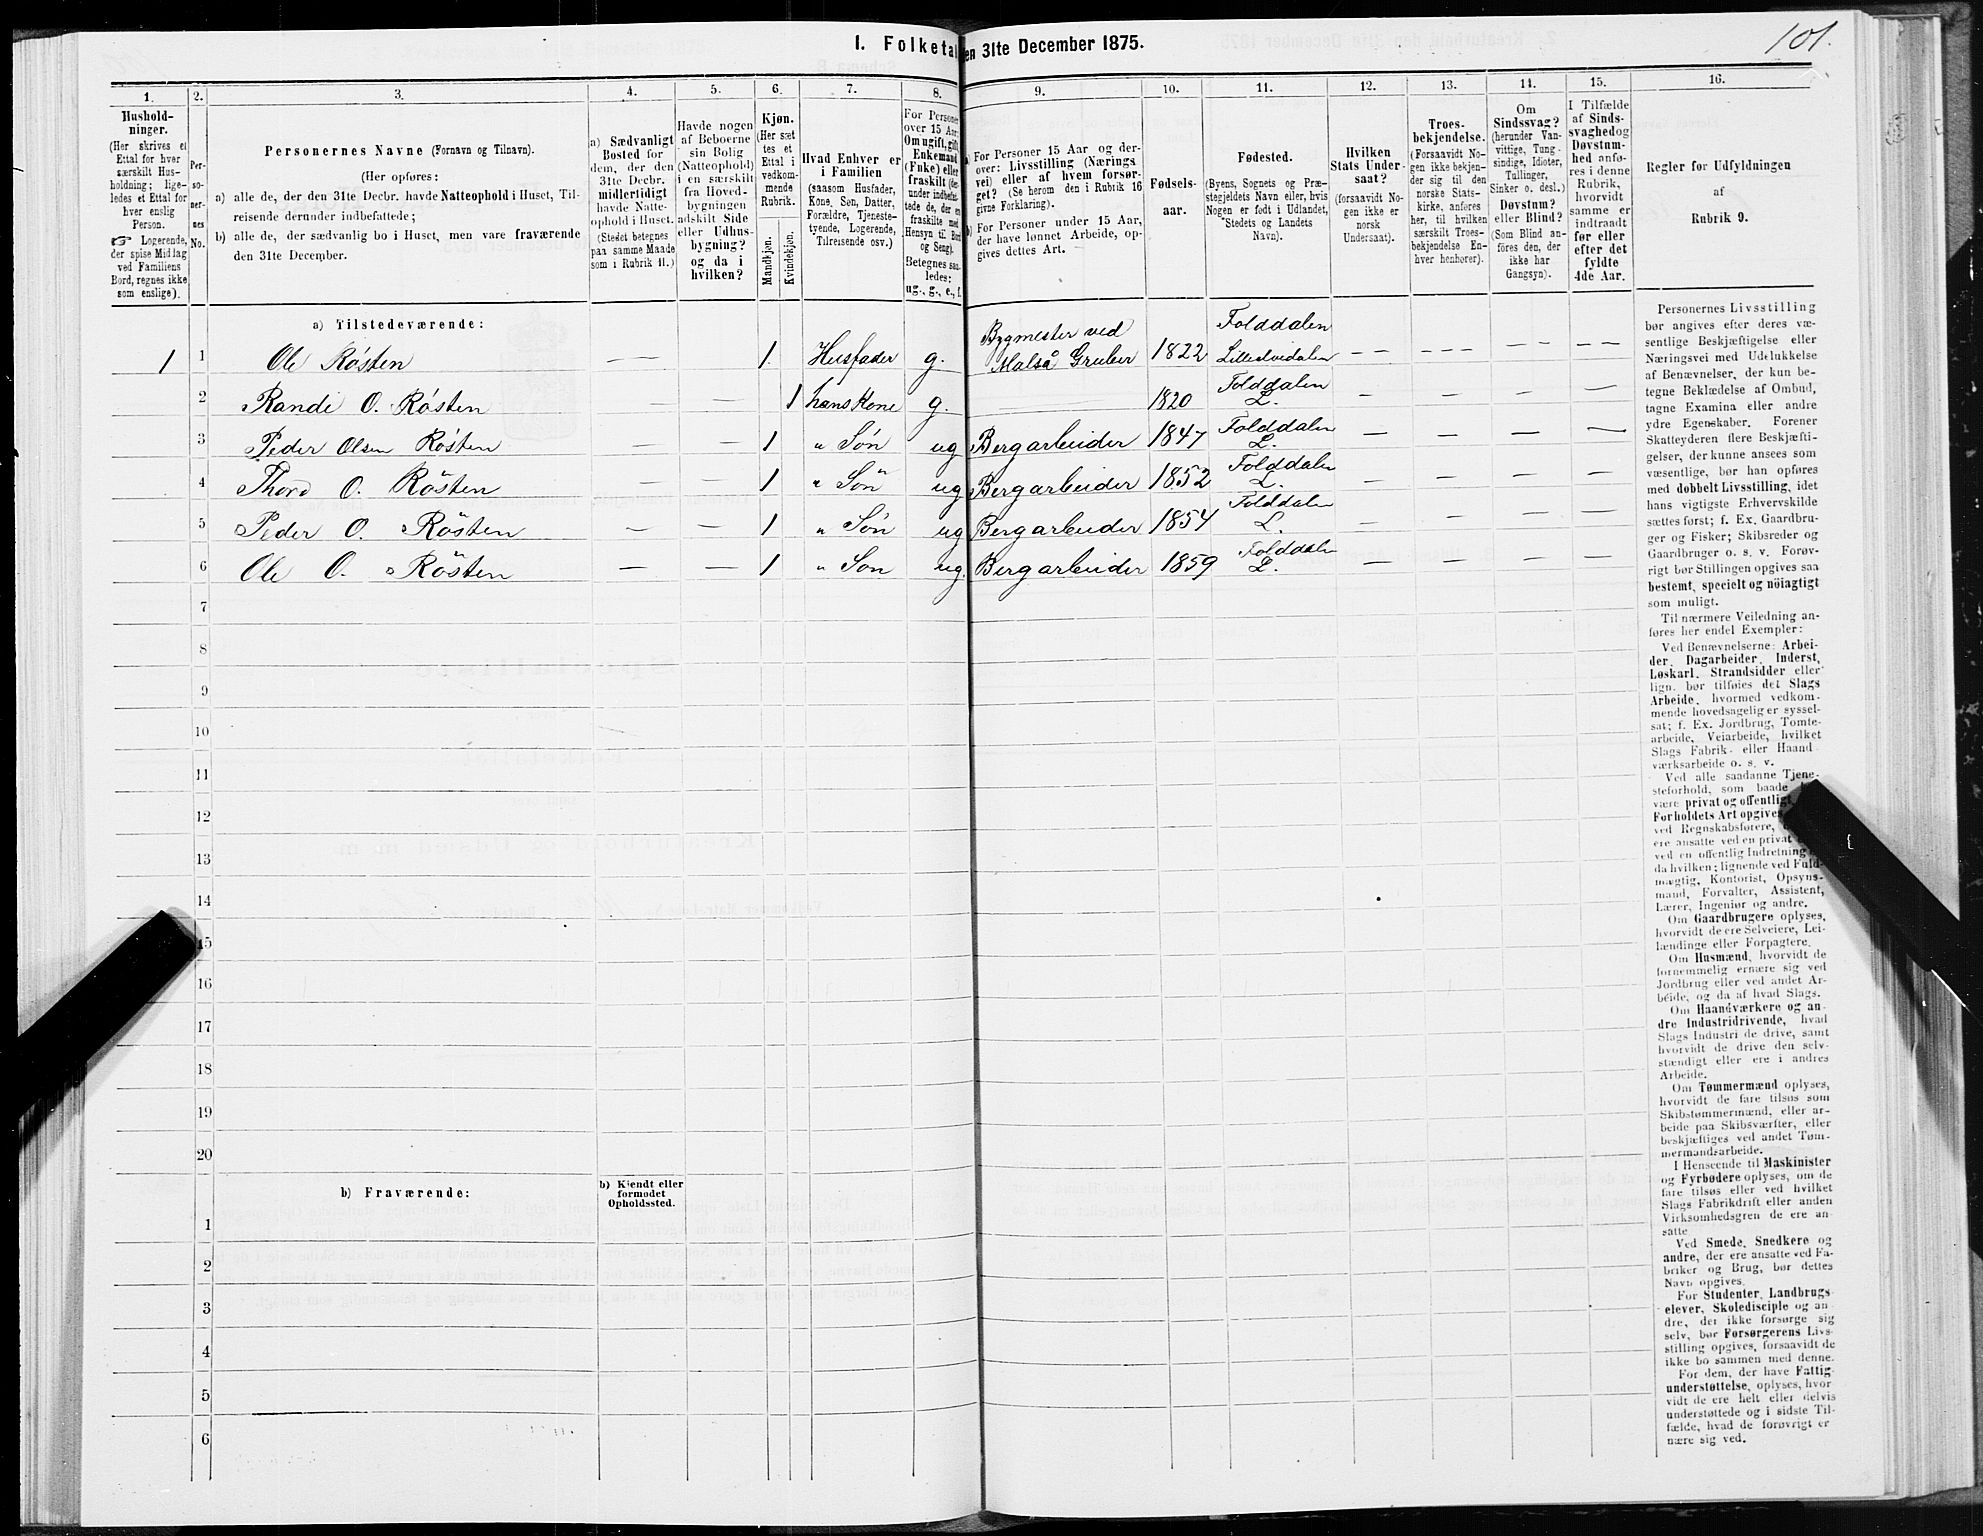 101.
I. Folketal
en 31te December 1875.
1.
Hushold-
ninger.
(Her skrives et
Ettal for hver
særskilt Hus-
holdning; lige-
ledes et Ettal for
hver enslig
Person.
☞ Logerende,
der spise Midlag
ved Familiens
Bord, regnes ikke
som enslige).
2.
Per-
so-
ner-
nes
No.
3.
Personernes Navne (Fornavn og Tilnavn).
(Her opføres:
a) alle de, der den 31te Decbr. havde Natteophold i Huset, Til-
reisende derunder indbefattede;
b) alle de, der sædvanlig bo i Huset, men vare fraværende
den 31te December.
4.
a) Sædvanligt
Bosted for
dem, der den
31te Decbr.
midlertidigt
havde Natte-
ophold i Huset.
(Stedet betegnes
paa samme Maade
som i Rubrik 11.)
5.
Havde nogen
af Beboerne
sin Bolig
(Natteophold)
i en særskilt
fra Hoved-
bygningen
adskilt Side
eller Udhus-
bygning?
og da i
hvilken?
6.
Kjøn.
(Her sæt
tes et
Ettal i
vedkom-
mende
Rubrik.
Mandkjøn.
Kvindekjøn.
7.
Hvad Enhver er
i Familien
(saasom Husfader,
Kone, Søn, Datter,
Forældre, Tjeneste-
tyende, Logerende,
Tilreisende osv.)
8.
For Personer
over 15 Aar:
Om ugift, gift,
Enkemand
(Enke) eller
fraskilt (der-
under indbefat-
tede de, der ere
fraskilte med
Hensyn til Bord
og Seng).
Betegnes saa-
ledes:
ug., g., e., f.
9.
a) For Personer 15 Aar og der-
over: Livsstilling (Nærings
vei) eller af hvem forsør-
get? (Se herom den i Rubrik 16
givne Forklaring).
b) For Personer under 15 Aar,
der have lønnet Arbeide, op-
gives dettes Art.
10.
Fødsels-
aar.
11.
Fødested.
(Byens, Sognets og Præ-
stegjeldets Navn eller, hvis
Nogen er født i Udlandet,
Stedets og Landets
Navn).
12.
Hvilken
Stats Under-
saat?
(forsaavidt No-
gen ikke er
norsk
Undersaat).
13.
Troes-
bekjendelse.
(Forsaavidt No-
gen ikke bekjen-
der sig til den
norske Stats-
kirke, anføres
her, til hvilken
særskilt Troes-
bekjendelse En-
hver henhører).
14.
Om
Sindssvag?
(herunder Van-
vittige, Tung-
sindige, Idioter,
Tullinger,
Sinker o. desl.)
Døvstum?
eller Blind?
(Som Blind an-
føres den, der
ikke har
Gangsyn).
15.
I Tilfælde
af Sinds-
svaghed og
Døvstum-
hed anfø-
res i denne
Rubrik,
hvorvidt
samme er
indtraadt
før eller
efter det
fyldte
4de Aar.
16.
Regler for Udfyldningen
af
Rubrik 9.
a) Tilstedeværende:
1 1 Ole Røsten — — 1. Husfader g. Bygmester ved Malså Gruber 1822 Folddalen Lilleelvedalen — — — — — — — — —
2 Randi O. Røsten — — 1 hans Kone g. — 1820 Folddalen L. — — — —
3 Peder Olsen Røsten — — 1 " Søn ug Bergarbeider 1847 Folddalen L. — — — —
4 Thord O. Røsten — — 1 " Søn ug Bergarbeider 1852 Folddalen L. — — — —
5 Peder O. Røsten — — 1 " Søn ug Bergarbeider 1854 Folddalen L. — — — —
6 Ole O. Røsten — — 1 " Søn ug. Bergarbeider 1859 Folddalen L. — — — —
7
8
9
10
11
12
13
14
15
16
17
18
19
20
b) Fraværende:
b) Kjendt eller
formodet
Opholdssted.
1
2
3
4
5
6
Personernes Livsstilling
bør angives efter deres væ-
sentlige Beskjæftigelse eller
Næringsvei med Udelukkelse
af Benævnelser, der kun be-
tegne Beklædelse af Ombud,
tagne Examina eller andre
ydre Egenskaber. Forener
Skatteyderen flere Beskjæfti-
gelser, der kunne ansees som
væsentlige, bør han opføres
med dobbelt Livsstilling, idet
hans vigtigste Erhvervskilde
sættes først; f. Ex. Gaardbru-
ger og Fisker; Skibsreder og
Gaardbruger o. s. v. Forøv-
rigt bør Stillingen opgives saa
bestemt, specielt og nöiagtigt
som muligt.
Til nærmere Veiledning an-
føres her endel Exempler:
Ved Benævnelserne: Arbei-
der, Dagarbeider, Inderst,
Løskarl, Strandsidder eller
lign. bør tilføies det Slags
Arbeide, hvormed vedkom-
mende hovedsagelig er syssel-
sat; f. Ex. Jordbrug, Tomte-
arbeide, Veiarbeide, hvilket
Slags Fabrik- eller Haand-
værksarbeide o. s. v.
Ved alle saadanne Tjene-
steforhold, som baade
være privat og offentligt,
Forholdets Art opgives
ved Regnskabsførere,
ere ansatte ved en privat
ved en offentlig Indretning
da hvilken; lignende ved Fuld-
mægtig, Kontorist, Opsyns-
mand, Forvalter, Assistent,
Lærer, Ingeniør og andre.
Om Gaardbrugere oplyses,
hvorvidt de ere Selveiere, Lei-
lændinge eller Forpagtere.
Om Husmænd, hvorvidt de
fornemmelig ernære sig ved
Jordbrug eller ved andet Ar-
beide, og da af hvad Slags.
Om Haandværkere og an-
dre Industridrivende, hvad
Slags Industri de drive, samt
hvorvidt de drive den selv-
stændigt eller ere i andres
Arbeide.
Om Tømmermænd oplyses,
hvorvidt de fare tilsøs som
Skibstømmermænd, eller ar-
beide paa Skibsværfter, eller
beskjæftiges ved andet Tøm-
mermandsarbeide.
I Henseende til Maskinister
og Fyrbødere oplyses, om de
fare tilsøs eller ved hvilket
Slags Fabrikdrift eller anden
Virksomhedsgren de ere an-
satte.
Ved Smede, Snedkere og
andre, der ere ansatte ved Fa-
briker og Brug, bør dettes
Navn opgives.
For Studenter, Landbrugs-
elever, Skoledisciple og an-
dre, der ikke forsørge sig
selv, bør Forsørgerens Livs-
stilling opgives, forsaavidt de
ikke bo sammen med denne.
For dem, der have Fattig-
understøttelse, oplyses, hvor
vidt de ere helt eller delvis
understøttede og i sidste Til-
fælde, hvad de forøvrigt er
nære sig ved.